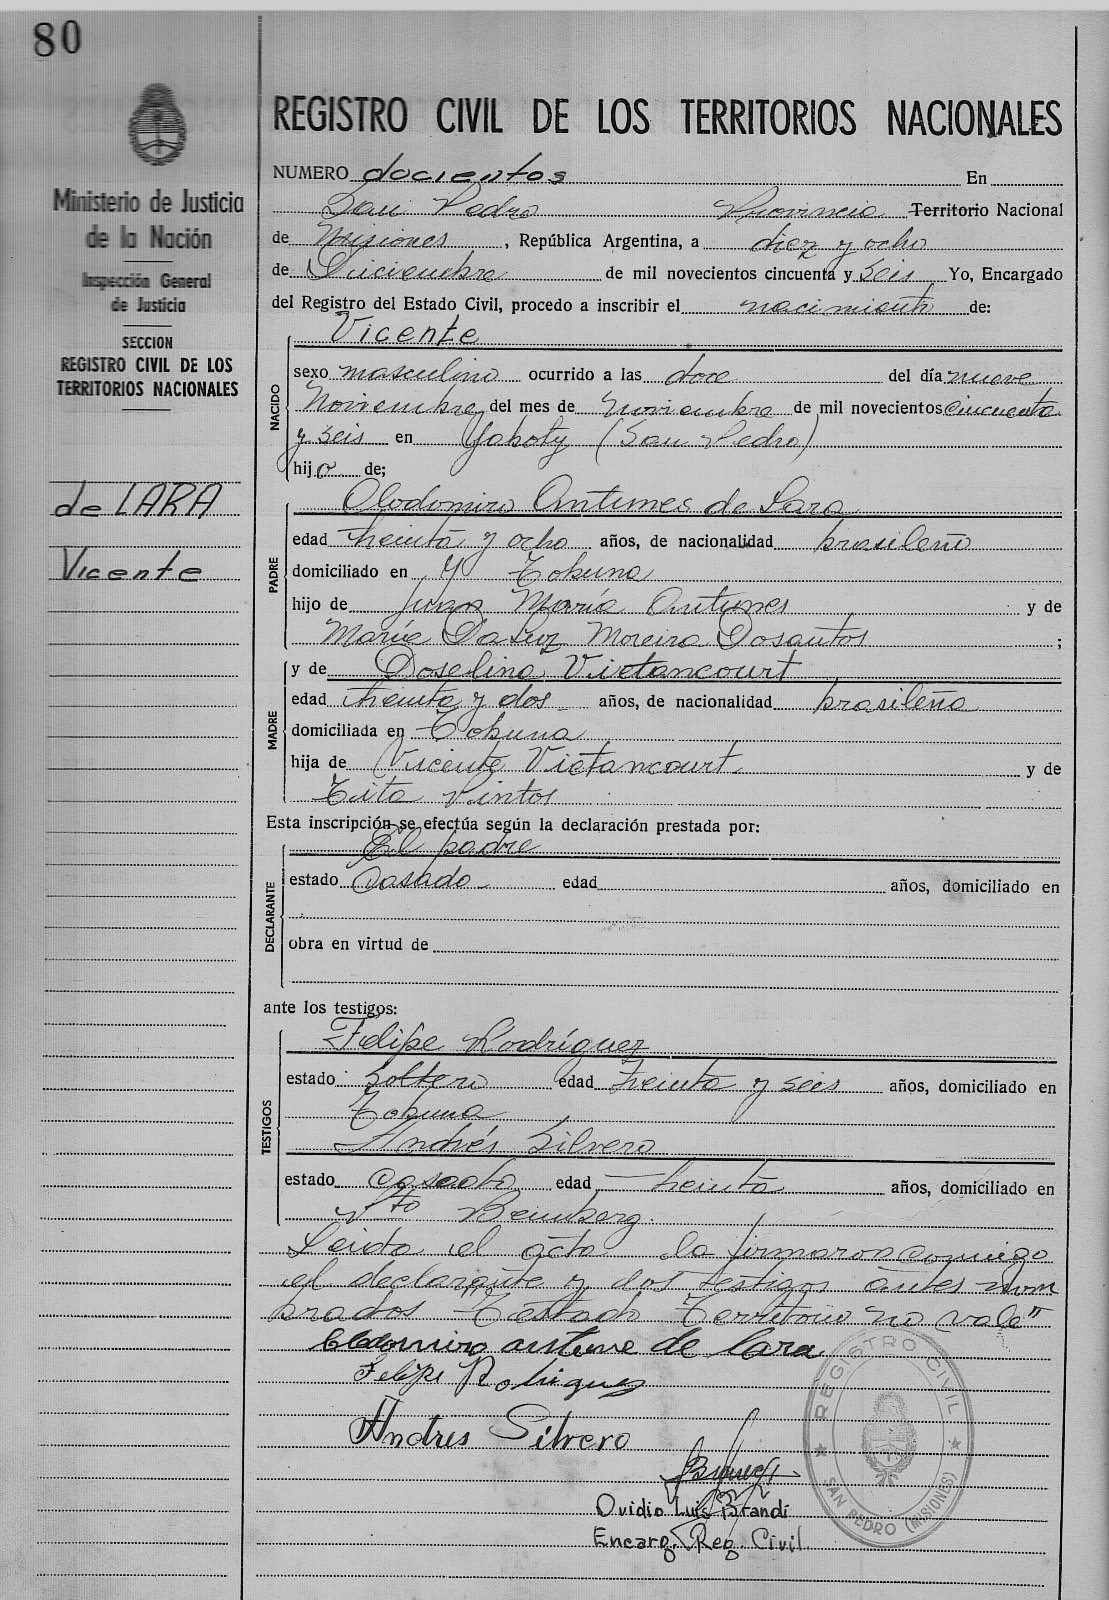 80
REGISTRO CIVIL DE LOS TERRITORIOS NACIONALES
Ministerio de Justicia
de la Nación
Inspección General
de Justicia
SECCION
REGISTRO CIVIL DE LOS
TERRITORIOS NACIONALES
de LARA
Vicente
NUMERO docientos En
San Pedro Provincia Territorio Nacional
de Misiones, República Argentina, a diez y ocho
de Diciembre de mil novecientos cincuenta y seis Yo, Encargado
del Registro del Estado Civil, procedo a inscribir el nacimiento de:
NACIDO
Vicente
sexo masculino ocurrido a las doce del día nueve
Noviembre del mes de noviembre de mil novecientos cincuenta
y seis en Yaboty (San Pedro)
hijo de;
PADRE
Clodomiro Antunes de Lara
edad treinta y ocho años, de nacionalidad brasileño
domiciliado en Tobuna
hijo de Juan María Antunes y de
María Daluz Moreira Dosantos ;
MADRE
y de Doselina Vietancourt
edad treinta y dos años, de nacionalidad brasileña
domiciliada en Tobuna
hija de Vicente Vietancourt y de
Tita Pintos
Esta inscripción se efectúa según la declaración prestada por:
DECLARANTE
El padre
estado Casado edad años, domiciliado en
obra en virtud de
ante los testigos:
TESTIGOS
Felipe Rodríguez
estado Soltero edad treinta y seis años, domiciliado en
Tobuna
Andrés Silvero
estado casado edad treinta años, domiciliado en
Pto Bemberg.
Leida el acta la firmaron conmigo
el declarante y dos testigos antes nom
brados "Testado Territorio no vale"
Clodomiro antune de lara
Felipe Rodriguez
Andres Silvero
Ovidio Luis Brandi
Encarg. Reg. Civil
REGISTRO CIVIL
SAN PEDRO (MISIONES)